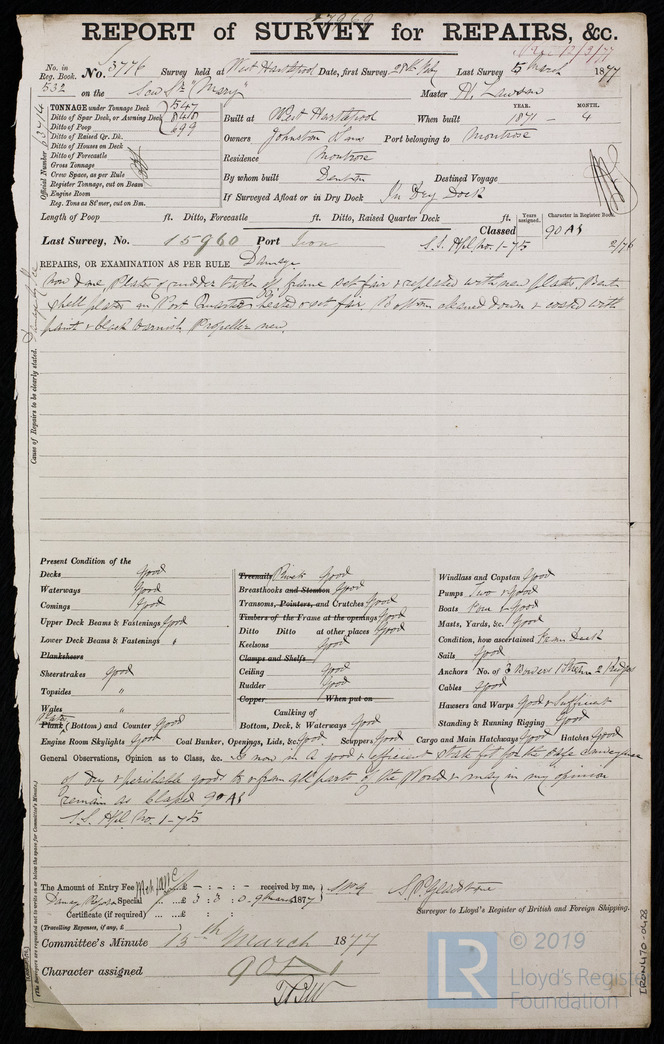 REPORT of SURVEY for REPAIRS, &c.
No. in Reg. Book. No. 3776 Survey held at West Hartlepool Date, first Survey 28th Feby Last Survey 5 March 1877
532 on the "Mary" Master H. Lawson
TONNAGE under Tonnage Deck 547
Ditto of Spar Deck, or Awning Deck 848
Ditto of Poop 699
Ditto of Raised Qr. Dk.
Ditto of Houses on Deck
Ditto of Forecastle
Gross Tonnage
Crew Space, as per Rule
Register Tonnage, cut on Beam
Engine Room
Reg. Tons as St'mer, cut on Bm.
Official Number
Built at West Hartlepool When built YEAR. 1871 - MONTH. 4
Owners Johnston Port belonging to Montrose
Residence Montrose
By whom built Denton Destined Voyage
If Surveyed Afloat or in Dry Dock In Dry Dock
Length of Poop ft. Ditto, Forecastle ft. Ditto, Raised Quarter Deck ft. Years assigned. Character in Register Book.
Classed 90 A1
Last Survey, No. 15960 Port Iron S.S. Hpl. No. 1-75 2/76
REPAIRS, OR EXAMINATION AS PER RULE Damage
Now done, Plates of rudder taken off, frame set fair & replated with new plates. Bent
shell plates on Port Quarter heated & set fair. Bottom cleaned down & coated with
paint & black varnish. Propeller new.
Causes of Repairs to be clearly stated.
Present Condition of the
Decks Good
Waterways Good
Comings Good
Upper Deck Beams & Fastenings Good
Lower Deck Beams & Fastenings "
Planksheers
Sheerstrakes Good
Topsides "
Wales "
Plank Plates (Bottom) and Counter Good
Treenails Rivets Good
Breasthooks and Stemson Good
Transoms, Pointers, and Crutches Good
Timbers of the Frame at the openings Good
Ditto Ditto at other places Good
Keelsons Good
Clamps and Shelfs
Ceiling Good
Rudder Good
Copper When put on
Caulking of
Bottom, Deck, & Waterways Good
Windlass and Capstan Good
Pumps Two & Good
Boats Four & Good
Masts, Yards, &c. Good
Condition, how ascertained From Deck
Sails Good
Anchors No. of 3 Bowers 1 Stream 2 Kedges
Cables Good
Hawsers and Warps Good & Sufficient
Standing & Running Rigging Good
Engine Room Skylights Good Coal Bunker, Openings, Lids, &c. Good Scuppers Good Cargo and Main Hatchways Good Hatches Good
General Observations, Opinion as to Class, &c. Is now in a good & efficient state fit for the safe conveyance
of dry & perishable goods to & from all parts of the World & may in my opinion
remain as Classed 90 A1
S.S. Hpl. No. 1-75
The Amount of Entry Fee £ - : - : - received by me,
Damage Repairs Special £ 3 : 3 : 0. 9 March 1877
Certificate (if required) £
(Travelling Expenses, if any, £ )
Surveyor to Lloyd's Register of British and Foreign Shipping.
Committee's Minute 13th March 1877
Character assigned 90 A1
(The Surveyors are requested not to write on or below the space for Committee's Minute.)
IRON470-0428
LR © 2019
Lloyd's Register
Foundation